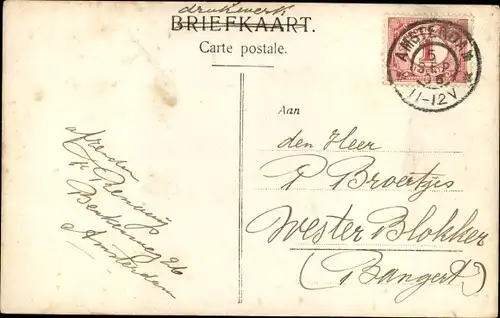 drukwerk
BRIEFKAART.
Carte postale.
AMSTERDAM
11-12V
1
Aan
den Heer
P Broertjes
Wester Blokker
(Bangert)
afzender
26
Amsterdam